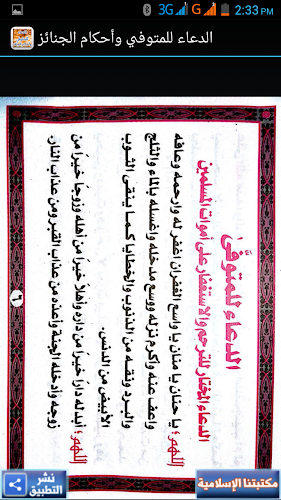 3G G 2:33 PM
الدعاء للمتوفي وأحكام الجنائز
الدعاء للمتوفَّى
الدعاء المختار للترحم والاستغفار على أموات المسلمين
اللَّهُمَّ؛ يا حنان يا منان يا واسع الغفران اغفر له وارحمه وعافه
واعف عنه وأكرم نزله ووسع مدخله واغسله بالماء والثلج
والبرد ونقه من الذنوب والخطايا كما ينقى الثوب
الأبيض من الدنس.
اللَّهُمَّ؛ أبدله داراً خيراً من داره وأهلاً خيراً من أهله وزوجاً خيراً من
زوجه وأدخله الجنة وأعذه من عذاب القبر ومن عذاب النار.
٦
نشر
التطبيق
مكتبتنا الإسلامية